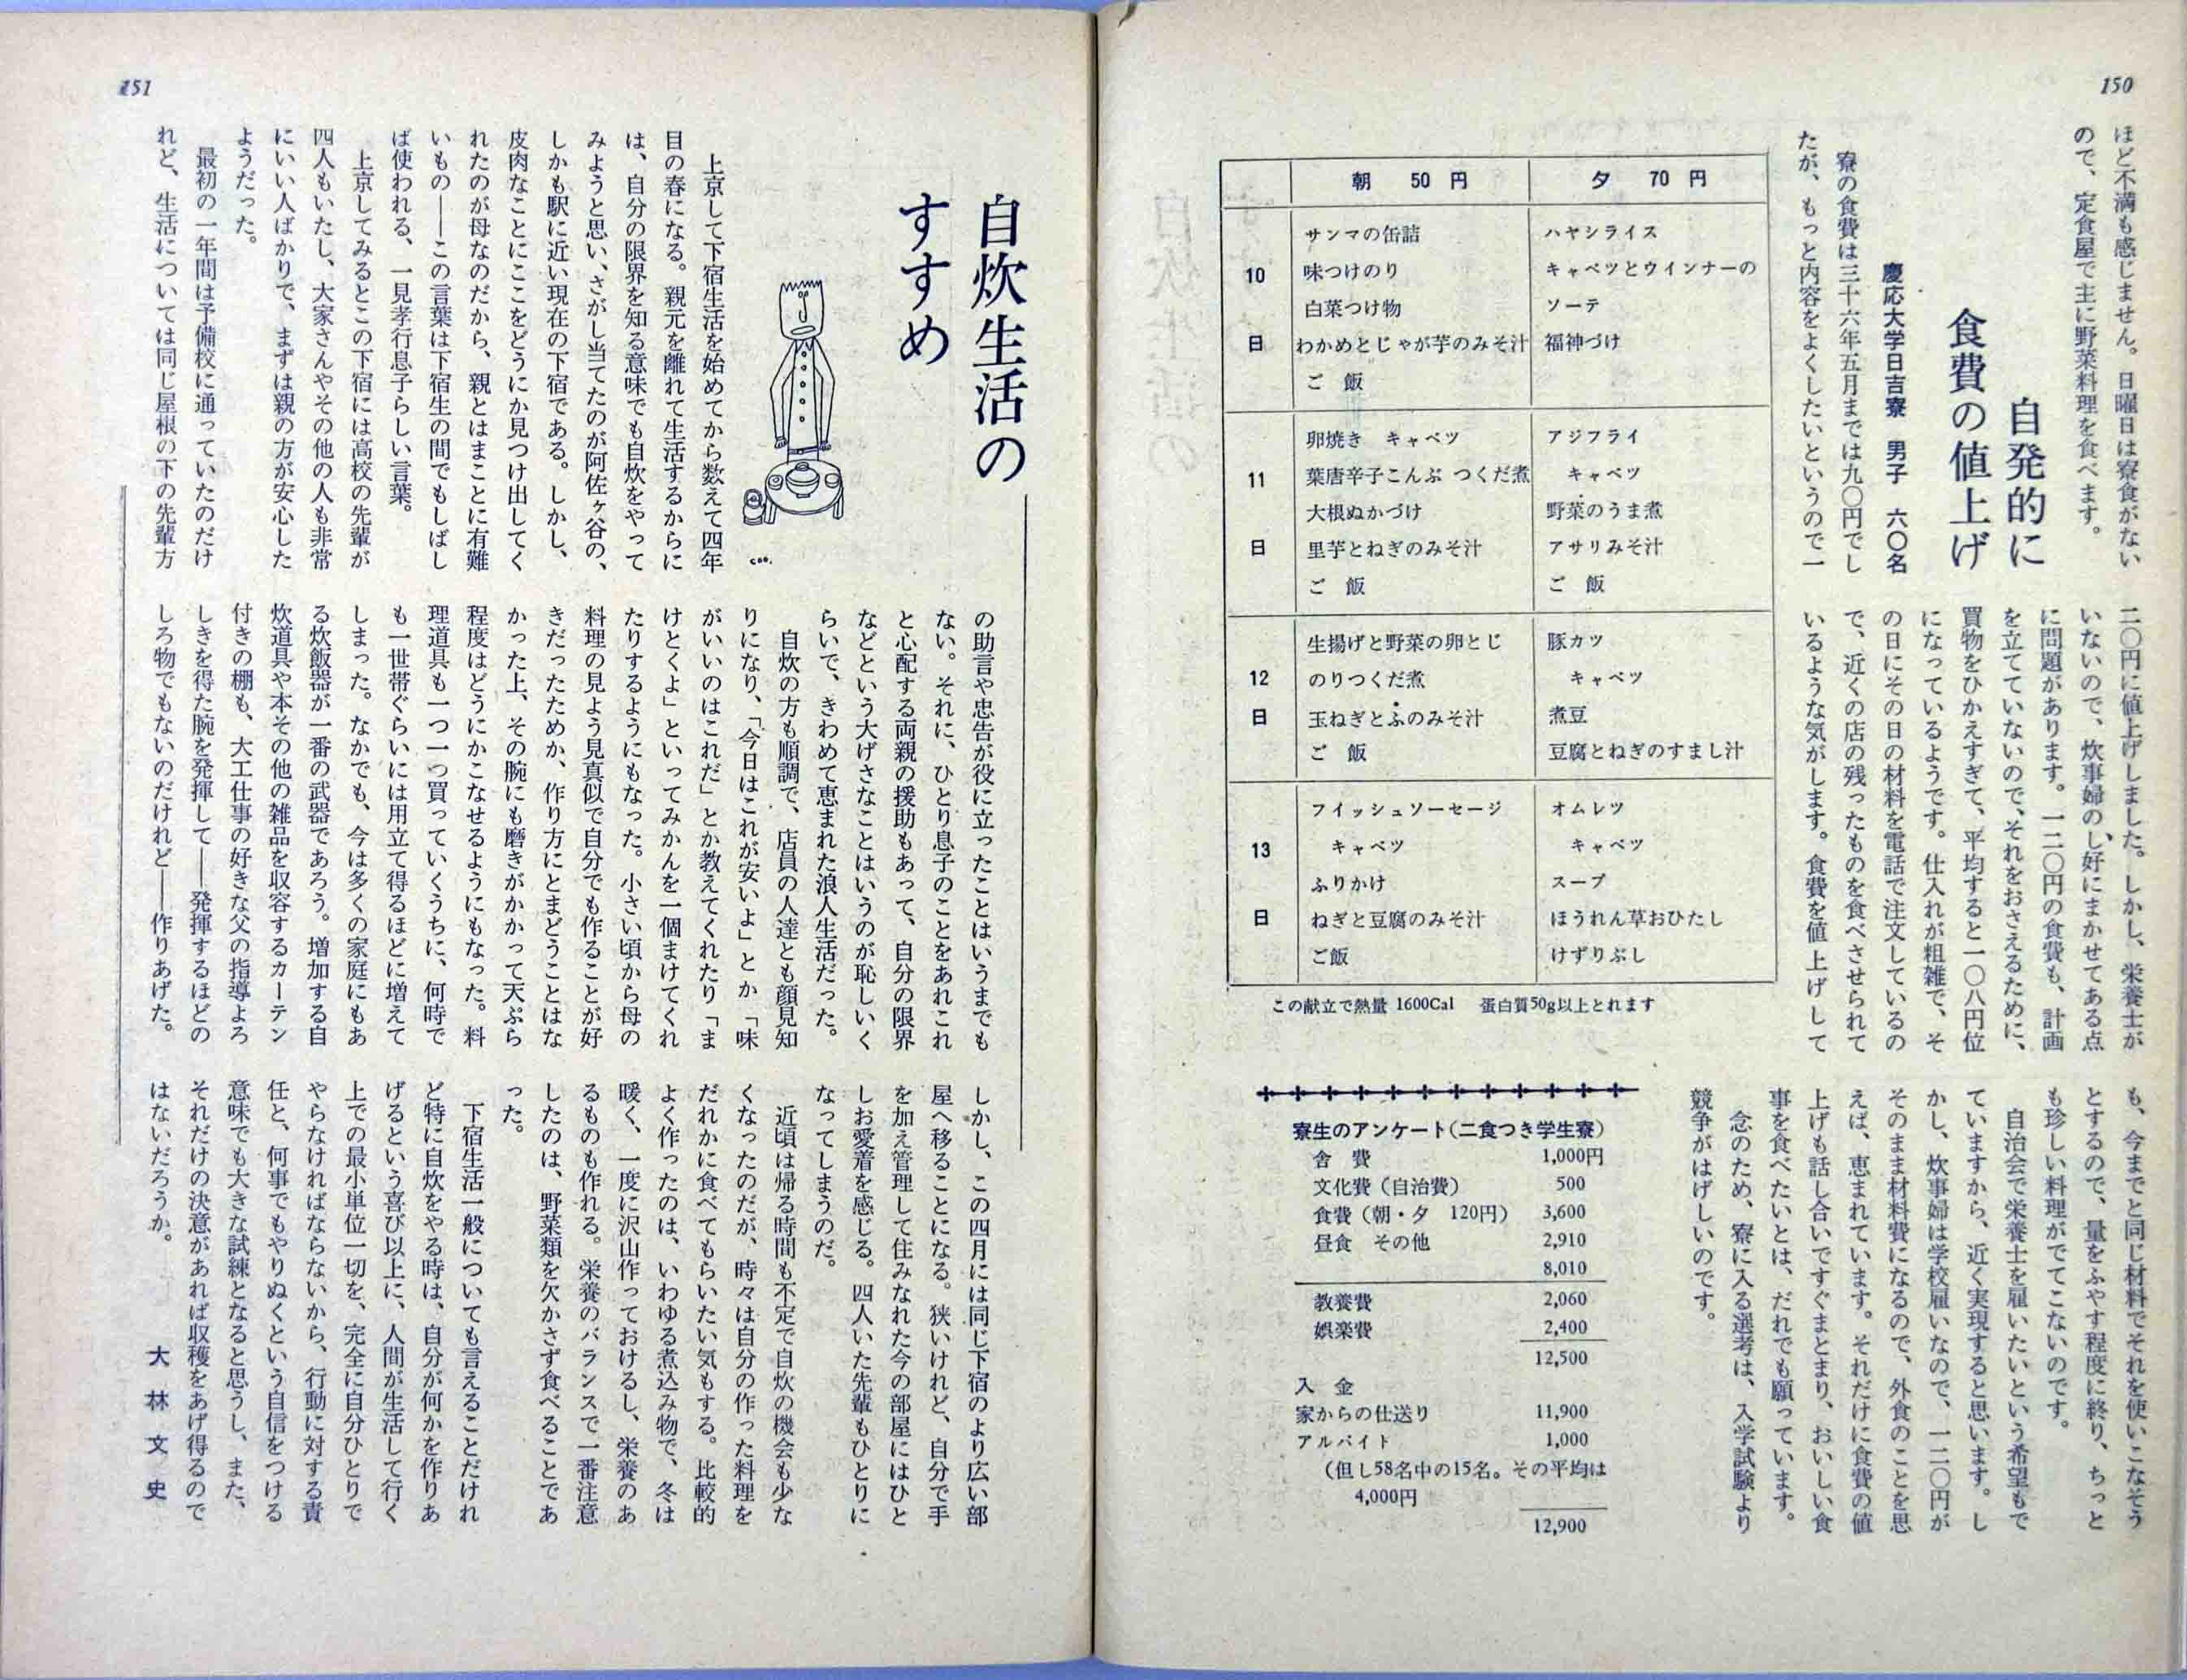 150
ほど不満も感じません。日曜日は寮食がない
ので、定食屋で主に野菜料理を食べます。
自発的に
食費の値上げ
慶応大学日吉寮　男子　六〇名
寮の食費は三十六年五月までは九〇円でし
たが、もっと内容をよくしたいというので一
二〇円に値上げしました。しかし、栄養士が
いないので、炊事婦のし好にまかせてある点
に問題があります。一二〇円の食費も、計画
を立てていないので、それをおさえるために、
買物をひかえすぎて、平均すると一〇八円位
になっているようです。仕入れが粗雑で、そ
の日にその日の材料を電話で注文しているの
で、近くの店の残ったものを食べさせられて
いるような気がします。食費を値上げして
も、今までと同じ材料でそれを使いこなそう
とするので、量をふやす程度に終り、ちっと
も珍しい料理がでてこないのです。
自治会で栄養士を雇いたいという希望もで
ていますから、近く実現すると思います。し
かし、炊事婦は学校雇いなので、一二〇円が
そのまま材料費になるので、外食のことを思
えば、恵まれています。それだけに食費の値
上げも話し合いですぐまとまり、おいしい食
事を食べたいとは、だれでも願っています。
念のため、寮に入る選考は、入学試験より
競争がはげしいのです。
朝　50　円　夕　70　円
10日
サンマの缶詰
味つけのり
白菜つけ物
わかめとじゃが芋のみそ汁
ご　飯
ハヤシライス
キャベツとウインナーの
ソーテ
福神づけ
11日
卵焼き　キャベツ
葉唐辛子こんぶ つくだ煮
大根ぬかづけ
里芋とねぎのみそ汁
ご　飯
アジフライ
キャベツ
野菜のうま煮
アサリみそ汁
ご　飯
12日
生揚げと野菜の卵とじ
のりつくだ煮
玉ねぎとふのみそ汁
ご　飯
豚カツ
キャベツ
煮豆
豆腐とねぎのすまし汁
13日
フイッシュソーセージ
キャベツ
ふりかけ
ねぎと豆腐のみそ汁
ご飯
オムレツ
キャベツ
スープ
ほうれん草おひたし
けずりぶし
この献立で熱量 1600Cal　蛋白質50g以上とれます
寮生のアンケート（二食つき学生寮）
舎　費　1,000円
文化費（自治費）　500
食費（朝・夕　120円）　3,600
昼食　その他　2,910
8,010
教養費　2,060
娯楽費　2,400
12,500
入　金
家からの仕送り　11,900
アルバイト　1,000
（但し58名中の15名。その平均は
4,000円
12,900
151
自炊生活の
すすめ
上京して下宿生活を始めてから数えて四年
目の春になる。親元を離れて生活するからに
は、自分の限界を知る意味でも自炊をやって
みようと思い、さがし当てたのが阿佐ヶ谷の、
しかも駅に近い現在の下宿である。しかし、
皮肉なことにここをどうにか見つけ出してく
れたのが母なのだから、親とはまことに有難
いもの――この言葉は下宿生の間でもしばし
ば使われる、一見孝行息子らしい言葉。
上京してみるとこの下宿には高校の先輩が
四人もいたし、大家さんやその他の人も非常
にいい人ばかりで、まずは親の方が安心した
ようだった。
最初の一年間は予備校に通っていたのだけ
れど、生活については同じ屋根の下の先輩方
の助言や忠告が役に立ったことはいうまでも
ない。それに、ひとり息子のことをあれこれ
と心配する両親の援助もあって、自分の限界
などという大げさなことはいうのが恥しいく
らいで、きわめて恵まれた浪人生活だった。
自炊の方も順調で、店員の人達とも顔見知
りになり、「今日はこれが安いよ」とか「味
がいいのはこれだ」とか教えてくれたり「ま
けとくよ」といってみかんを一個まけてくれ
たりするようにもなった。小さい頃から母の
料理の見よう見真似で自分でも作ることが好
きだったためか、作り方にとまどうことはな
かった上、その腕にも磨きがかかって天ぷら
程度はどうにかこなせるようにもなった。料
理道具も一つ一つ買っていくうちに、何時で
も一世帯ぐらいには用立て得るほどに増えて
しまった。なかでも、今は多くの家庭にもあ
る炊飯器が一番の武器であろう。増加する自
炊道具や本その他の雑品を収容するカーテン
付きの棚も、大工仕事の好きな父の指導よろ
しきを得た腕を発揮して――発揮するほどの
しろ物でもないのだけれど――作りあげた。
しかし、この四月には同じ下宿のより広い部
屋へ移ることになる。狭いけれど、自分で手
を加え管理して住みなれた今の部屋にはひと
しお愛着を感じる。四人いた先輩もひとりに
なってしまうのだ。
近頃は帰る時間も不定で自炊の機会も少な
くなったのだが、時々は自分の作った料理を
だれかに食べてもらいたい気もする。比較的
よく作ったのは、いわゆる煮込み物で、冬は
暖く、一度に沢山作っておけるし、栄養のあ
るものも作れる。栄養のバランスで一番注意
したのは、野菜類を欠かさず食べることであ
った。
下宿生活一般についても言えることだけれ
ど特に自炊をやる時は、自分が何かを作りあ
げるという喜び以上に、人間が生活して行く
上での最小単位一切を、完全に自分ひとりで
やらなければならないから、行動に対する責
任と、何事でもやりぬくという自信をつける
意味でも大きな試練となると思うし、また、
それだけの決意があれば収穫をあげ得るので
はないだろうか。
大　林　文　史